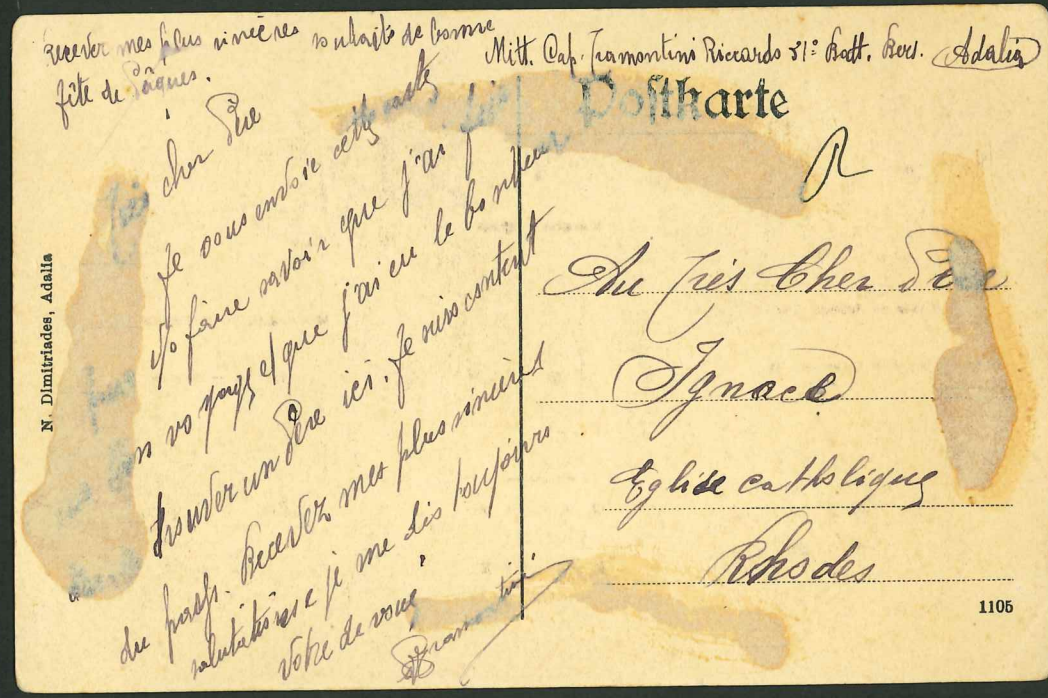 recever mes plus sincères souhaits de bonne
fête de Pâques.
Mitt. Cap. Tramontini Riccardo 31° Batt. Bers. Adalia
Postkarte
cher Père
Je vous envoie cette carte
faire savoir que j'ai
voyage et que j'ai eu le bonheur
trouver un Père ici. Je suis content
du pays. Recevez mes plus sincères
salutations e je me dis toujours
votre devoué
Tramontini
Au Très Cher Père
Ignace
Eglise catholique
Rhodes
N. Dimitriades, Adalia
1105